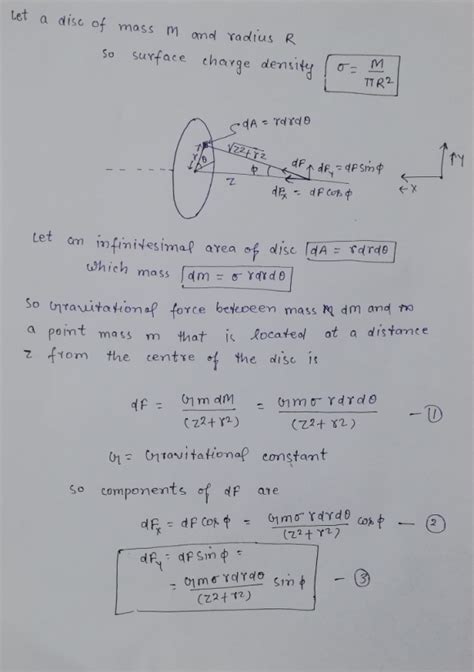 Let a disc of mass M and radius R
so surface charge density σ = M/πR²
dA = rdrdθ
√z²+r²
r
θ
z
φ
dF
dFy = dF sinφ
dFx = dF cosφ
Y
←X
Let an infinitesimal area of disc dA = rdrdθ
which mass dm = σ rdrdθ
so Gravitational force between mass dm and
a point mass m that is located at a distance
z from the centre of the disc is
dF = Gm dM/(z²+r²) = Gmσ rdrdθ/(z²+r²) — ①
G = Gravitational constant
so components of dF are
dFx = dF cosφ = Gmσ rdrdθ/(z²+r²) cosφ — ②
dFy = dF sinφ =
= Gmσ rdrdθ/(z²+r²) sinφ — ③